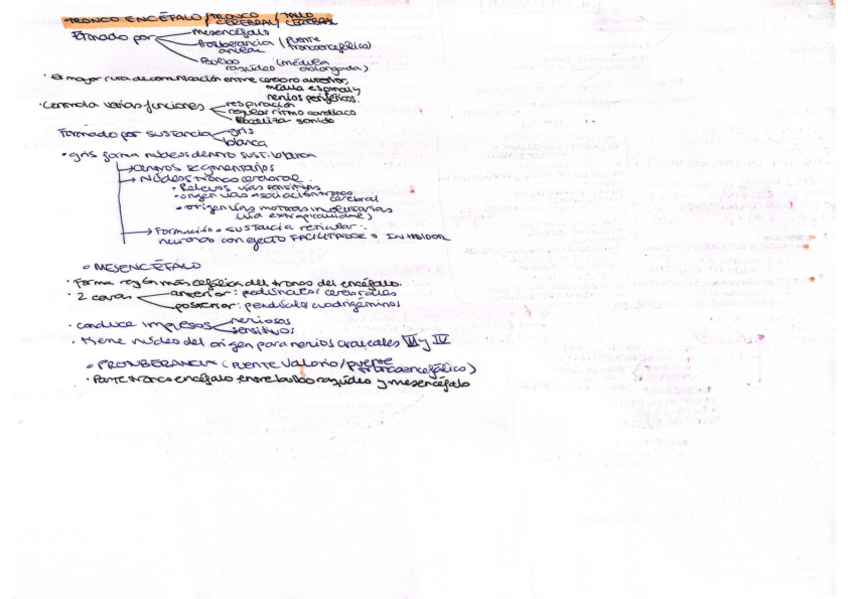 TRONCO ENCÉFALO / TRONCO CEREBRAL / TALLO CEREBRAL
Formado por
mesencéfalo
Protuberancia anular (Puente troncoencefálico)
Bulbo raquídeo (médula oblongada)
· Es mayor ruta de comunicación entre cerebro anterior,
médula espinal y
nervios periféricos.
· Controla varias funciones
respiración
regular ritmo cardíaco
localiza sonido
Formado por sustancia
gris
blanca
· gris forma núcleos dentro sust. blanca
→ centros segmentarios
→ Núcleos tronco cerebral
· Relevos vías sensitivas
· origen vías asociación tronco cerebral
· origen vías motoras involuntarias
(vía extrapiramidal)
→ Formación o sustancia reticular:
neuronas con efecto FACILITADOR o INHIBIDOR
◦ MESENCÉFALO
· Forma región más cefálica del tronco del encéfalo.
· 2 caras
anterior: pedúnculos cerebrales
posterior: pedúnculos cuadrigéminos
· conduce impulsos
nerviosos
sensitivos
· tiene núcleo del origen para nervios craneales III y IV
◦ PROTUBERANCIA (PUENTE Valorio / puente troncoencefálico)
· Parte tronco encéfalo entre bulbo raquídeo y mesencéfalo